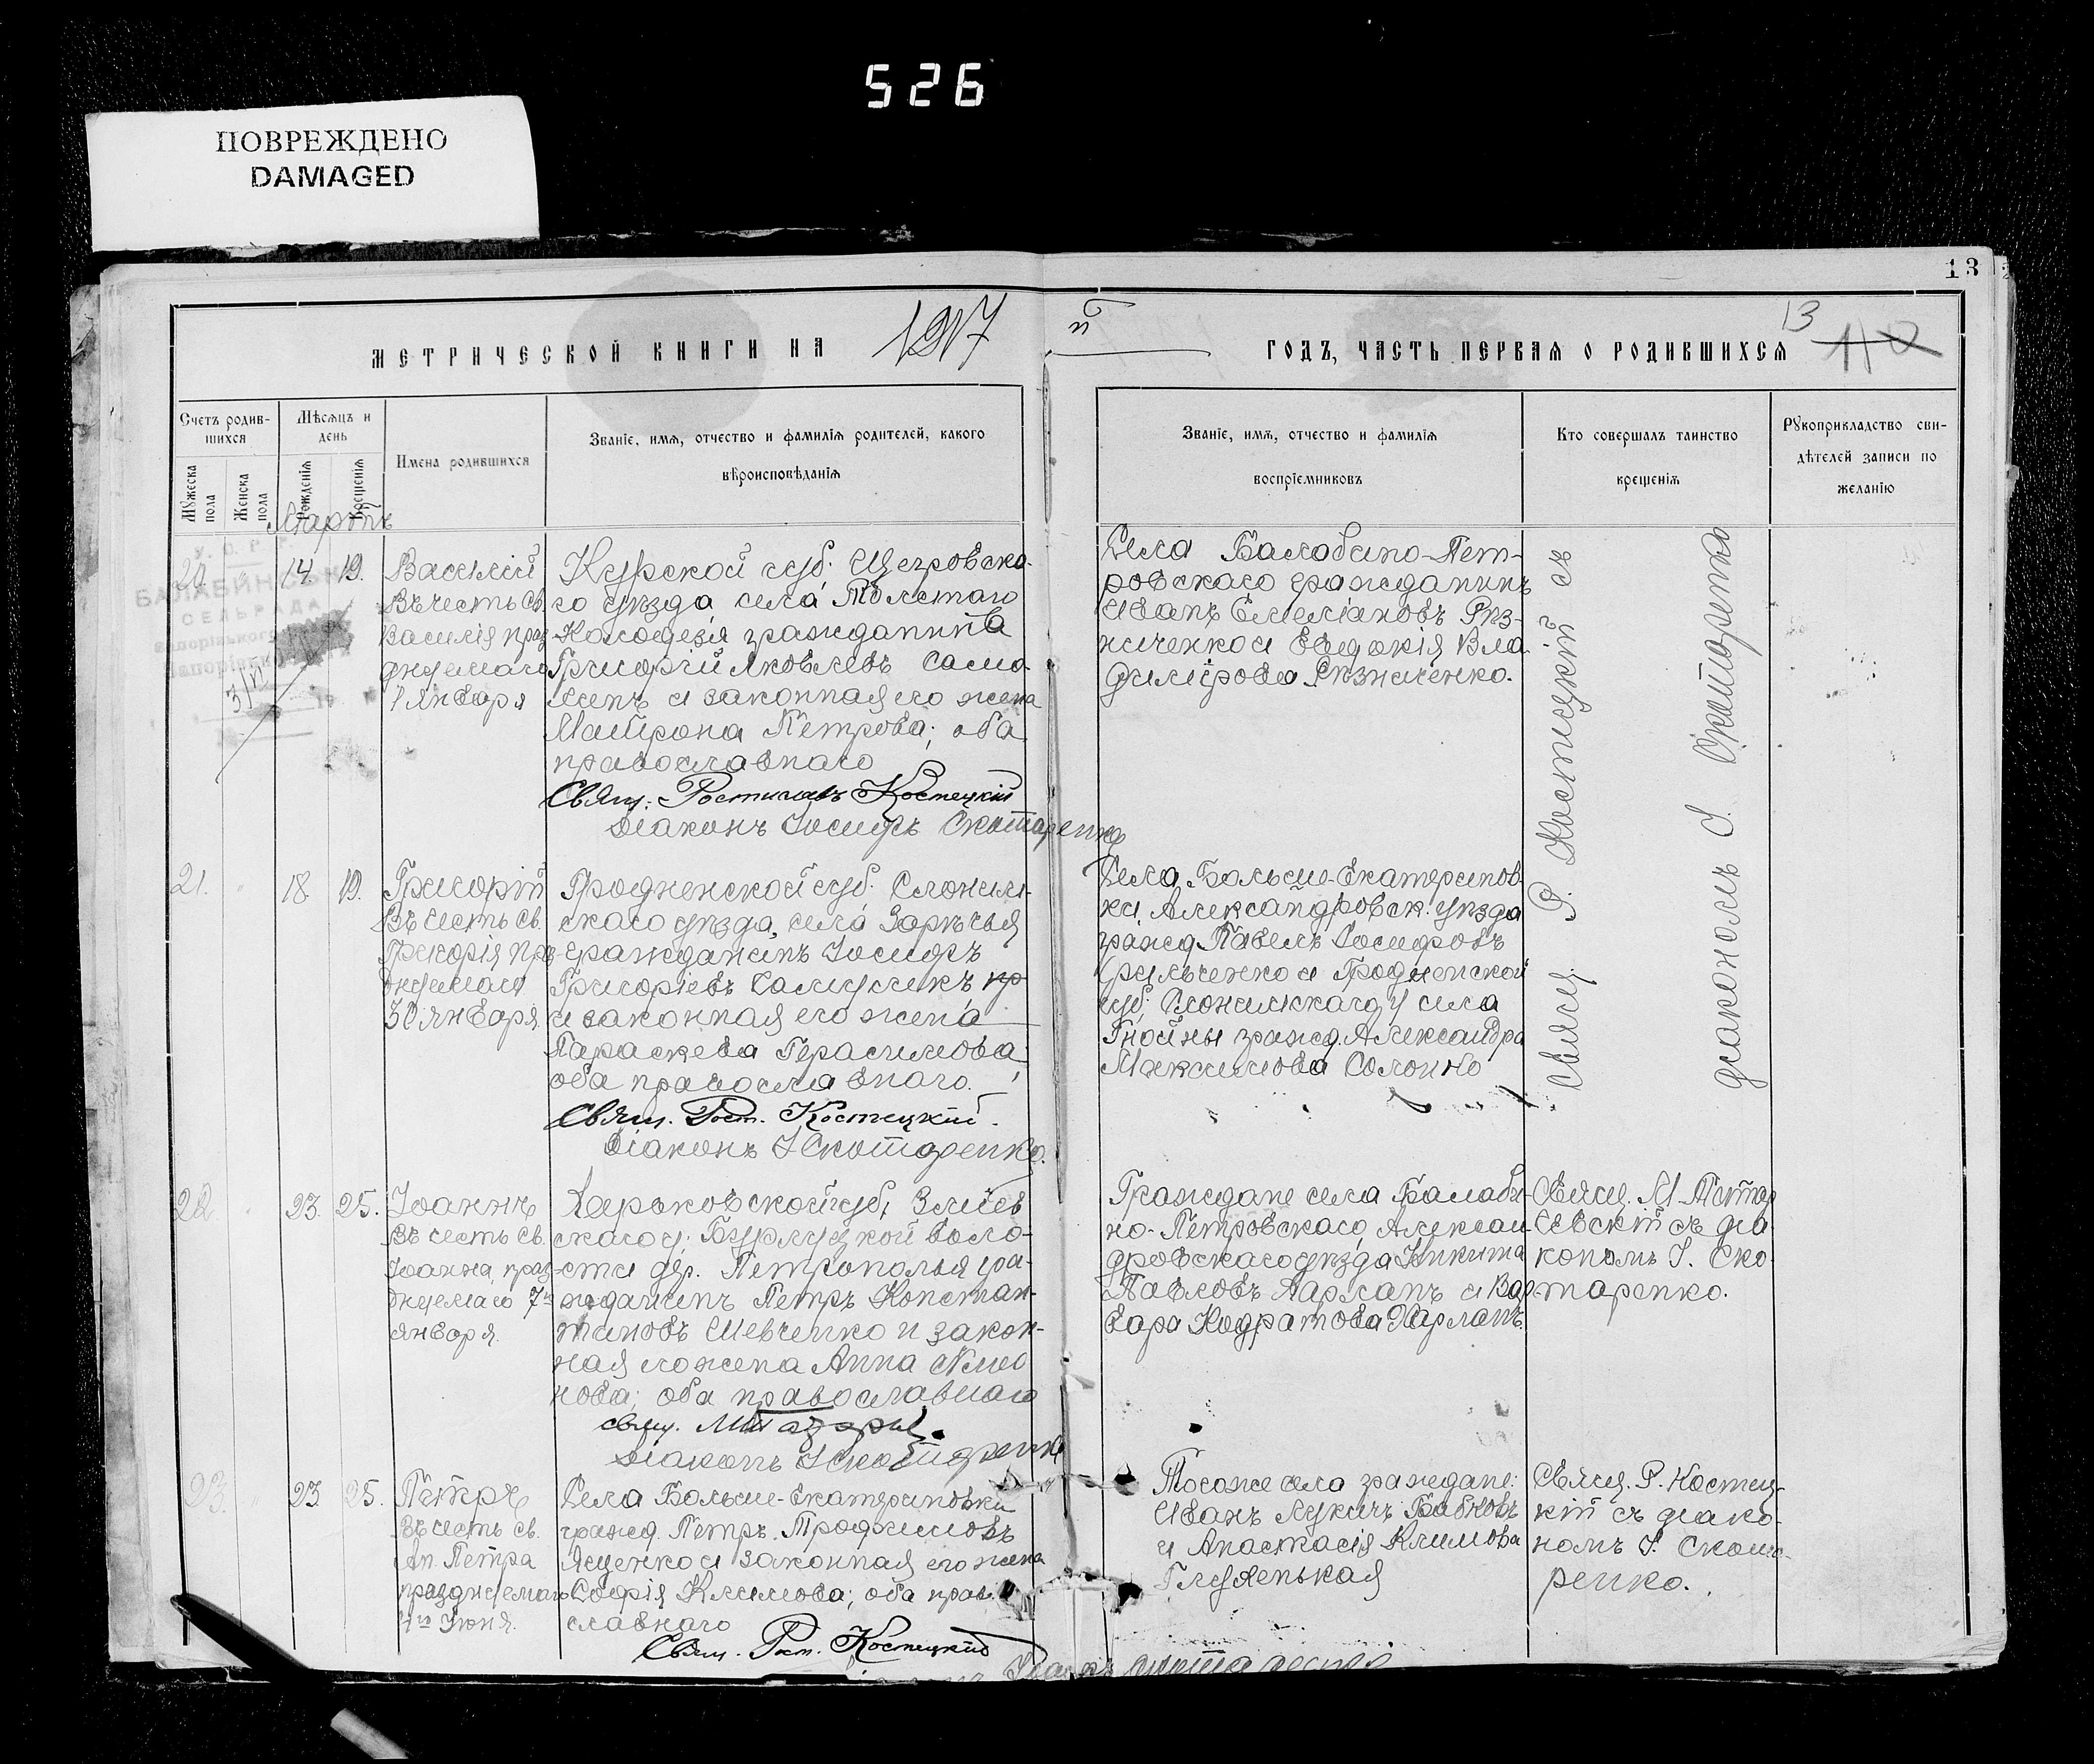 526
ПОВРЕЖДЕНО
DAMAGED
13
МЕТРИЧЕСКОЙ КНИГИ НА 1917
й
ГОДЪ, ЧАСТЬ ПЕРВАЯ О РОДИВШИХСЯ
13
110
Счетъ родив-
шихся
Мужеска
пола
Женска
пола
Мѣсяцъ и
день
Рожденія
Крещенія
Имена родившихся
Званіе, имя, отчество и фамилія родителей, какого
вѣроисповѣданія
Званіе, имя, отчество и фамилія
воспріемниковъ
Кто совершалъ таинство
крещенія
Рукоприкладство сви-
дѣтелей записи по
желанію
Мартъ
СЕЛЬРАДА
20. " 14. 19.
Василій
Въ честь св.
Василія праз-
днуемаго
1 Января
Курской губ. Щегровска-
го уѣзда села Толстаго
Колодезя гражданина
Григорій Яковлевъ
и законная его жена
Матрона Петрова; оба
православнаго
Свящ. Ростиславъ Костецкій
Діаконъ Іосифъ Скотаренко
Села Балабино-Пет-
ровскаго гражданинъ
Иванъ Емеліановъ Рѣз-
ниченко и Евдокія Вла-
димірова Рѣзниченко.
Свящ. Р. Костецкій съ
діакономъ І. Скотаренко
21. " 18. 19.
Григорій
Въ честь св.
Григорія пра-
днуемаго
30 Января
Гродненской губ. Слоним-
скаго уѣзда, села Зарѣчья
гражданинъ Іосифъ
Григоріевъ пр
и законная его жена
Параскева Герасимова;
оба православнаго.
Свящ. Рост. Костецкій.
Діаконъ І Скотаренко.
Села Больше-Екатеринов-
ки, Александровск. уѣзда
гражд. Павелъ Іосифовъ
и Гродненской
губ. Слонимскаго у села
Гнойны гражд. Александра
Максимова
22. " 23. 25.
Іоаннъ
Въ честь св.
Іоанна, праз-
днуемаго 7го
января.
Харьковской губ, Зміев
скаго у. Бурлуцкой воло-
сти дер. Петрополья гра-
жданинъ Петръ Констан-
тиновъ Шевченко и закон-
ная его жена Анна
нова; оба православнаго
свящ.
Діаконъ І Скотаренко
Граждане села Балаби-
но-Петровскаго, Алексан-
дровскаго уѣзда Никита
Павловъ Харланъ и Вар-
вара Кодратова Харланъ.
Свящ. М.
съ діа-
кономъ І. Ско-
таренко.
23. " 23 25.
Петръ
Въ честь св.
Ап. Петра
празднуемаго
Іюня.
Села Больше-Екатериновки
гражд. Петръ Трофимовъ
Яценко и законная его жена
Софія Климова; оба право
славнаго
Свящ. Рост. Костецкій
Тогоже села граждане:
Иванъ Лукичъ Бабковъ
и Анастасія Климова
Свящ. Р. Костец-
кій съ діако-
номъ І. Скота-
ренко.